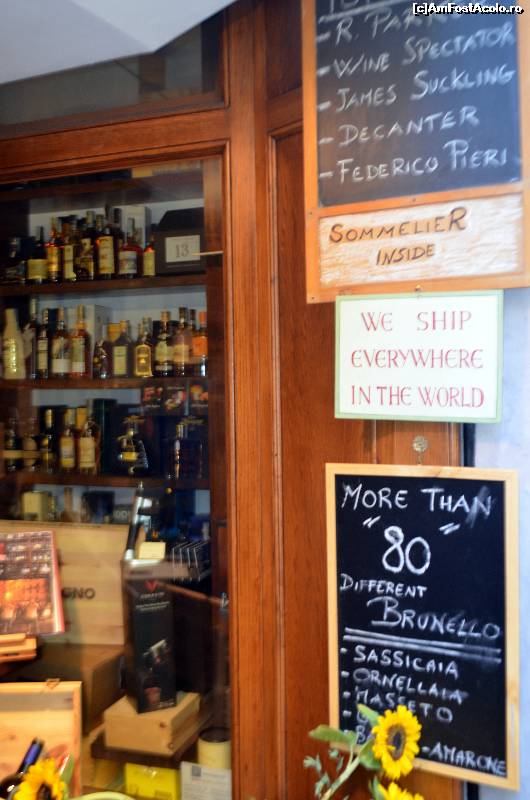 [c]AmFostAcolo.ro
- WINE SPECTATOR
- JAMES SUCKLING
- DECANTER
- FEDERICO PIERI
SOMMELIER
INSIDE
WE SHIP
EVERYWHERE
IN THE WORLD
MORE THAN
"80"
DIFFERENT
BRUNELLO
- SASSICAIA
- ORNELLAIA
- MASSETO
- AMARONE
13